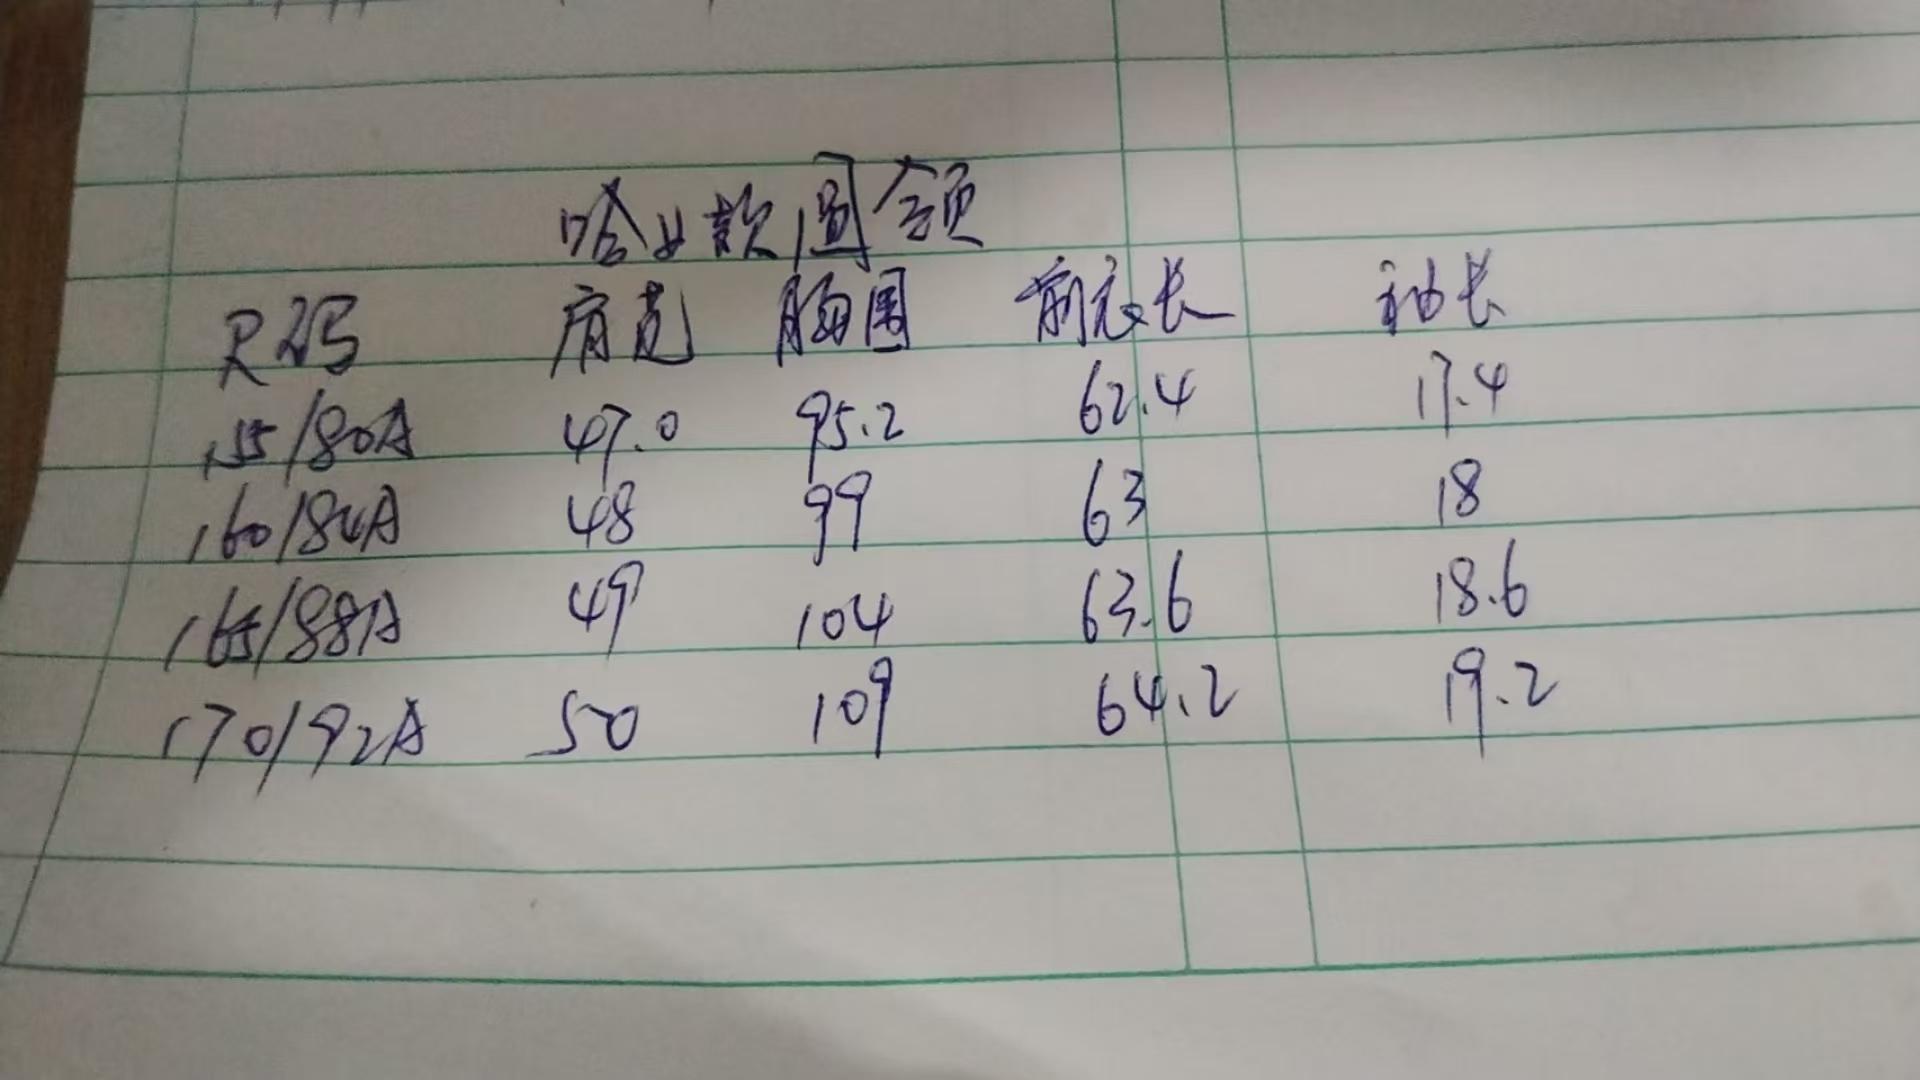 哈女款圆领
尺码 肩宽 胸围 前衣长 袖长
155/80A 47.0 95.2 62.4 17.4
160/84A 48 99 63 18
165/88A 49 104 63.6 18.6
170/92A 50 109 64.2 19.2